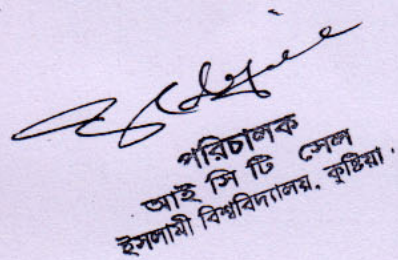 পরিচালক
আই সি টি সেল
ইসলামী বিশ্ববিদ্যালয়, কুষ্টিয়া.